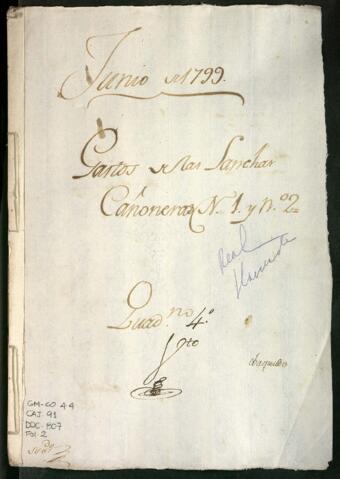 Junio de 1799.
Gastos de las Lanchas
Cañoneras N.1. y N.º2
Real
Hacienda
Quad.no 4.º
GM-CO 44
CAJ. 91
DOC. 807
Fol. 2